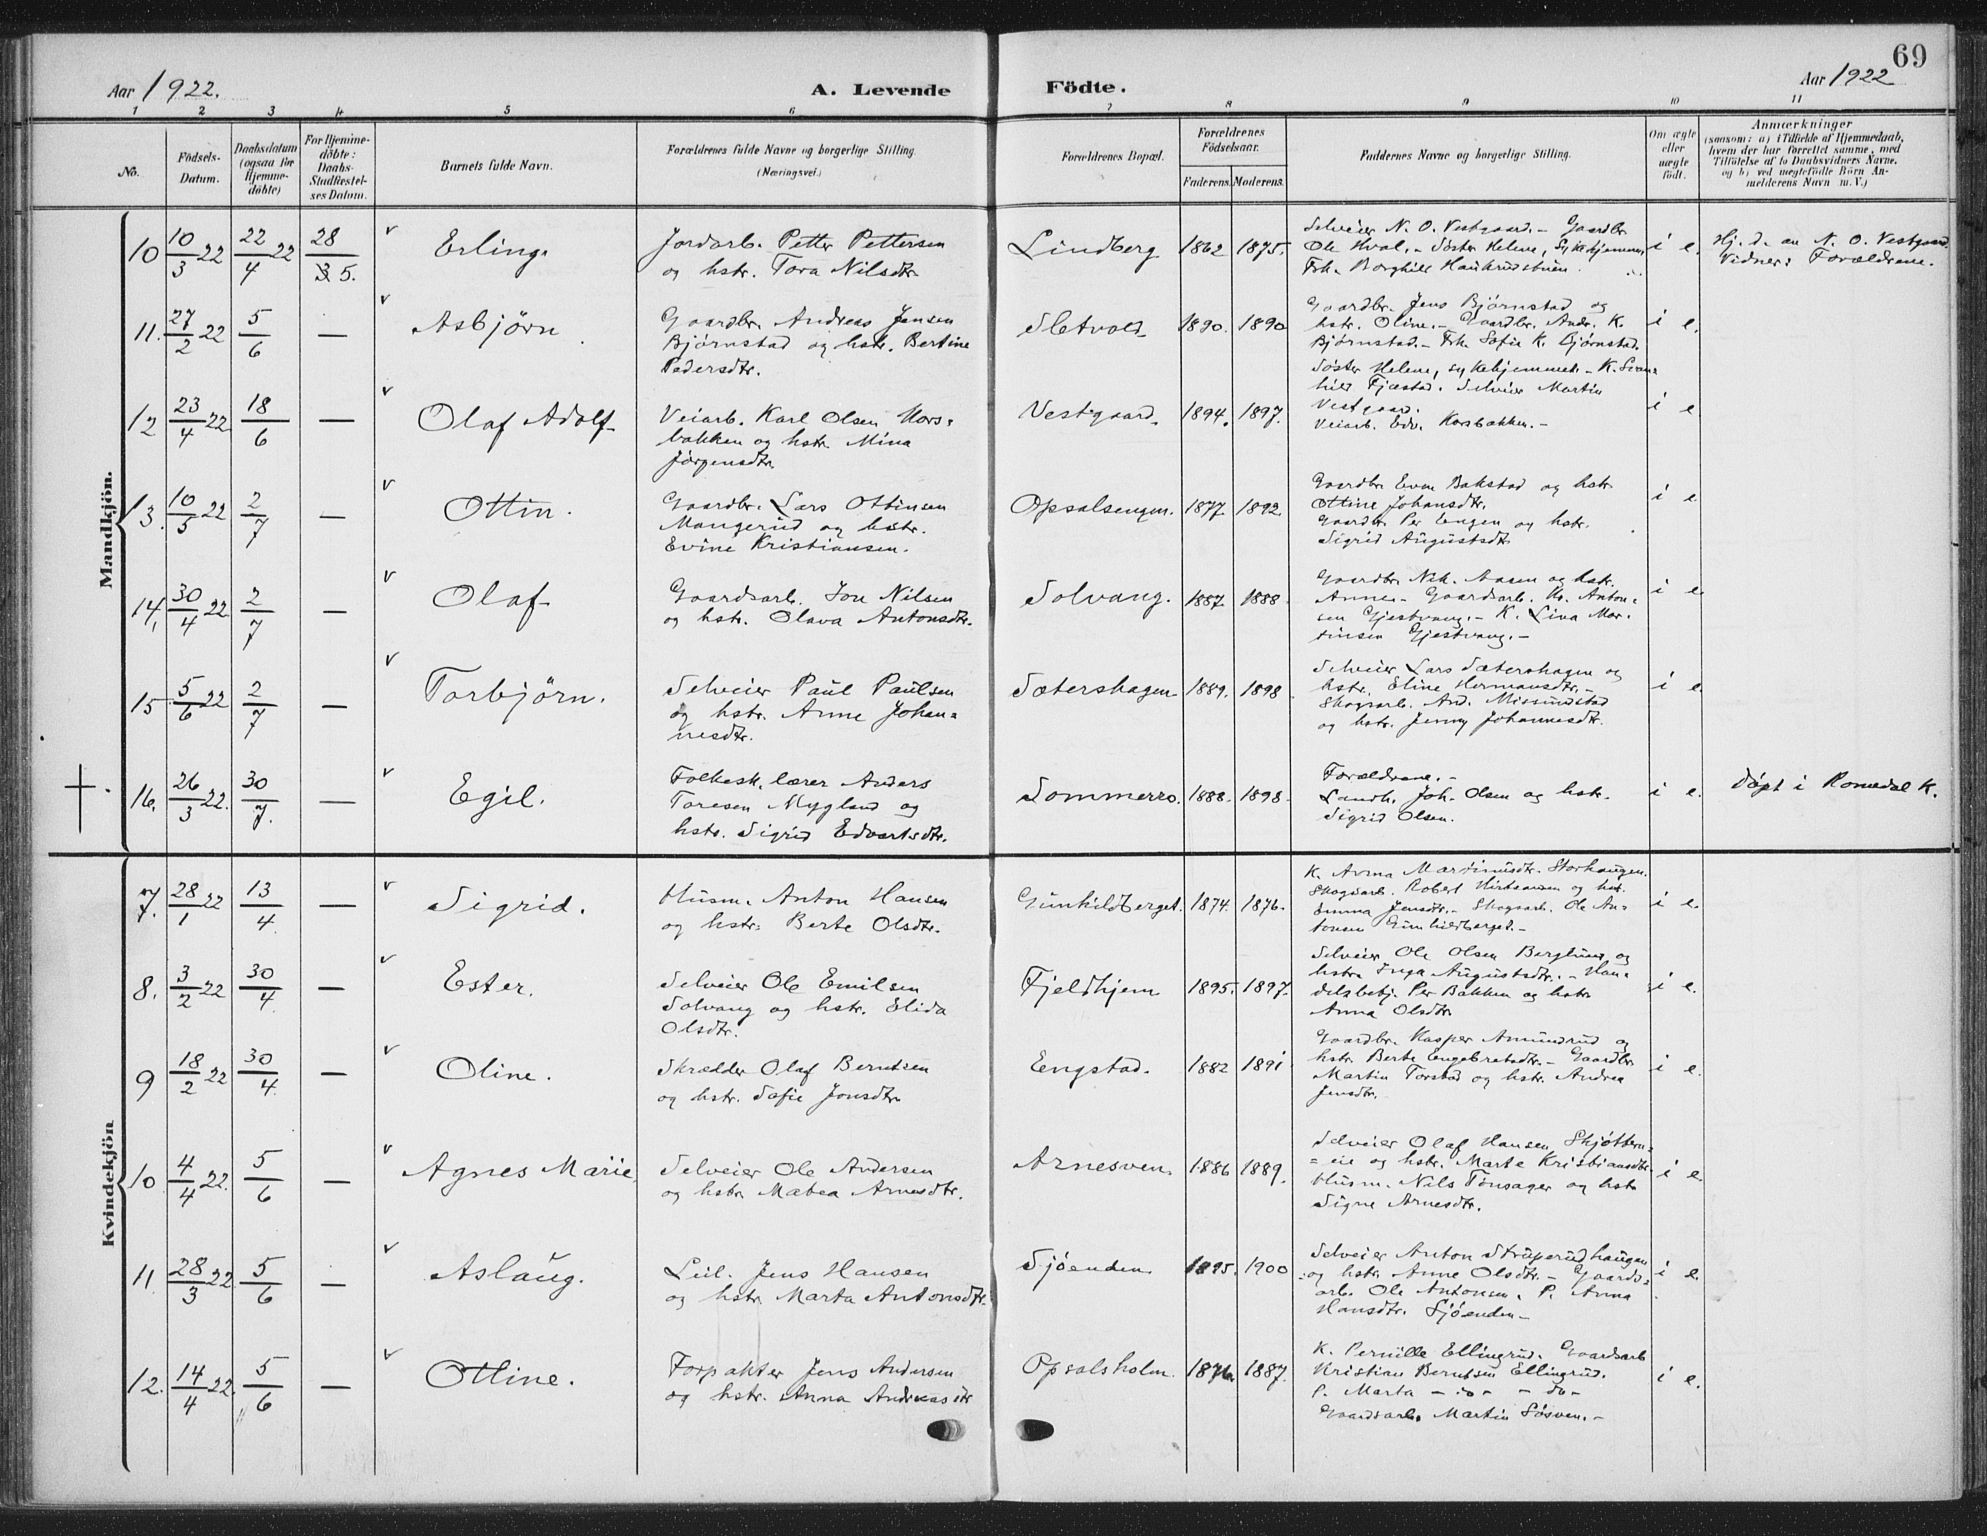 69
Aar 1922. A. Levende Födte. Aar 1922
1 2 3 4 5 6 7 8 9 10 11
No.
Födsels-
Datum.
Daabsdatum
(ogsaa for
Hjemme-
döbte)
For Hjemme-
döbte:
Daabs-
Stadfestel-
ses Datum.
Barnets fulde Navn.
Forældrenes fulde Navne og borgerlige Stilling.
(Næringsvei.)
Forældrenes Bopæl.
Forældrenes
Födselsaar.
Faderens. Moderens.
Faddernes Navne og borgerlige Stilling.
Om ægte
eller
uægte
födt.
Anmærkninger
(saasom: a) i Tilfælde af Hjemmedaab,
hvem der har forrettet samme, med
Tilföielse af to Daabsvidners Navne,
og b) ved uegtefödte Börn An-
melderens Navn m. V.)
Mandkjön.
10 10/3 22 22/4 22 28/5. Erling.
Jordarb. Petter Pettersen
og hstr. Tora Nilsdtr.
Lindberg 1862 1875.
Selveier N. O. Vestgaard. - Gaardbr.
Ole Hval. - Søster Helene, Sykehjemmet,
Frk. Borghild Haukrudstuen.
i e.
Hj. d. av N. O. Vestgaard.
Vidner: Forældrene.
11. 27/2 22 5/6 — Asbjørn
Gaardbr. Andreas Jensen
Bjørnstad og hstr. Bertine
Pedersdtr.
Sletvold 1890. 1890
Gaardbr. Jens Bjørnstad og
hstr. Oline. - Gaardbr. Andr. K.
Bjørnstad. - Frk. Sofie K. Bjørnstad.
i e.
12 23/4 22 18/6 — Olaf Adolf
Veiarb. Karl Olsen Kors=
bakken og hstr. Mina
Jørgensdtr.
Vestgaard. 1894. 1897.
Søster Helene, sykehjemmet - K. Svan=
hild Fjæstad. Selveier Martin
Vestgaard.
Veiarb. Edv. Korsbakken. -
i e
13. 10/5 22 2/7 — Ottin.
Gaardbr. Lars Ottinsen
Mangerud og hstr.
Evine Kristiansen.
Opsalsengen. 1877. 1892.
Gaardbr. Even Bakstad og hstr
Ottine Johansdtr.
Gaardbr. Per Engen og hstr.
Sigrid Augustsdtr
i e
14. 30/4 22 2/7 — Olaf
Gaardsarb. Jon Nilsen
og hstr. Olava Antonsdtr.
Solvang. 1887. 1888.
Gaardbr. Nik. Aasen og hstr.
Anne - Gaardsarb. Kr. Anton=
sen Gjestvang. - K. Lina Mar=
tinsen Gjestvang. -
i e.
15 5/6 22 2/7 — Torbjörn.
Selveier Paul Paulsen
og hstr. Anne Johan=
nesdtr.
Sætershagen 1889. 1898
Selveier Lars Sætershagen og
hstr. Eline Hermansdtr. -
Skogsarb. And. Missundstad
og hstr. Jenny Johannesdtr.
i e.
16. 26/3 22. 30/7. — Egil.
Folkesk. lærer Anders
Toresen Mygland og
hstr. Sigrid Edvartsdtr.
Sommerro. 1888. 1898.
Forældrene. -
Landh. Joh. Olsen og hstr.
Sigrid Olsen.
i e.
Döpt i Romedal K.
Kvindekjön
7. 28/1 22 13/4 — Sigrid.
Husm. Anton Hansen
og hstr. Berte Olsdtr.
Gunhildberget. 1874. 1876.
K. Anna Martinusdtr. Storhaugen.
Skogsarb. Robert og hstr.
Emma Jensdtr. - Skogsarb. Ole An=
tonsen Gunhildberget. -
i e.
8. 3/2 22 30/4 — Ester.
Selveier Ole Emilsen
Solvang og hstr. Elida
Olsdtr.
Fjeldhjem 1895. 1897.
Selveier Ole Olsen Berglund og
hstr. Inga Augustsdtr. - Han=
delsbetj. Per Bakken og hstr
Anna Olsdtr.
i e.
9 18/2 22 30/4. — Oline.
Skrædder Olaf Berntsen
og hstr. Sofie Jonsdtr
Engstad. 1882 1891
Gaardbr. Kasper Amundrud og
hstr. Berte Engebretsdtr. - Gaardbr
Martin Torstad og hstr. Andrea
Jensdtr.
i e.
10. 4/4 22. 5/6 — Agnes Marie
Selveier Ole Andersen
og hstr. Mathea Arnesdtr.
Arnesven. 1886 1889.
Selveier Olaf Hansen Skjötteru=
=eie og hstr. Marte Kristiansdtr.
Husm. Nils Tönsager og hstr
Signe Arnesdtr.
i e.
11. 28/3 22 5/6 — Aslaug.
Leil. Jens Hansen
og hstr Marta Antonsdtr.
Sjøenden 1895. 1900
Selveier Anton Struperudhaugen
og hstr. Anne Olsdtr. - Gaards=
arb. Ole Antonsen. P. Anna
Hansdtr. Sjøenden -
i e.
12. 14/4 22. 5/6 — Ottine.
Forpakter Jens Andersen
og hstr. Anna Andreasdtr
Opsalsholm. 1876. 1887.
K. Pernille Ellingrud. Gaardsarb
Kristian Berntsen Ellingrud.
P. Marta - do - - do -
Gaardsarb. Martin Løsven. -
i e.